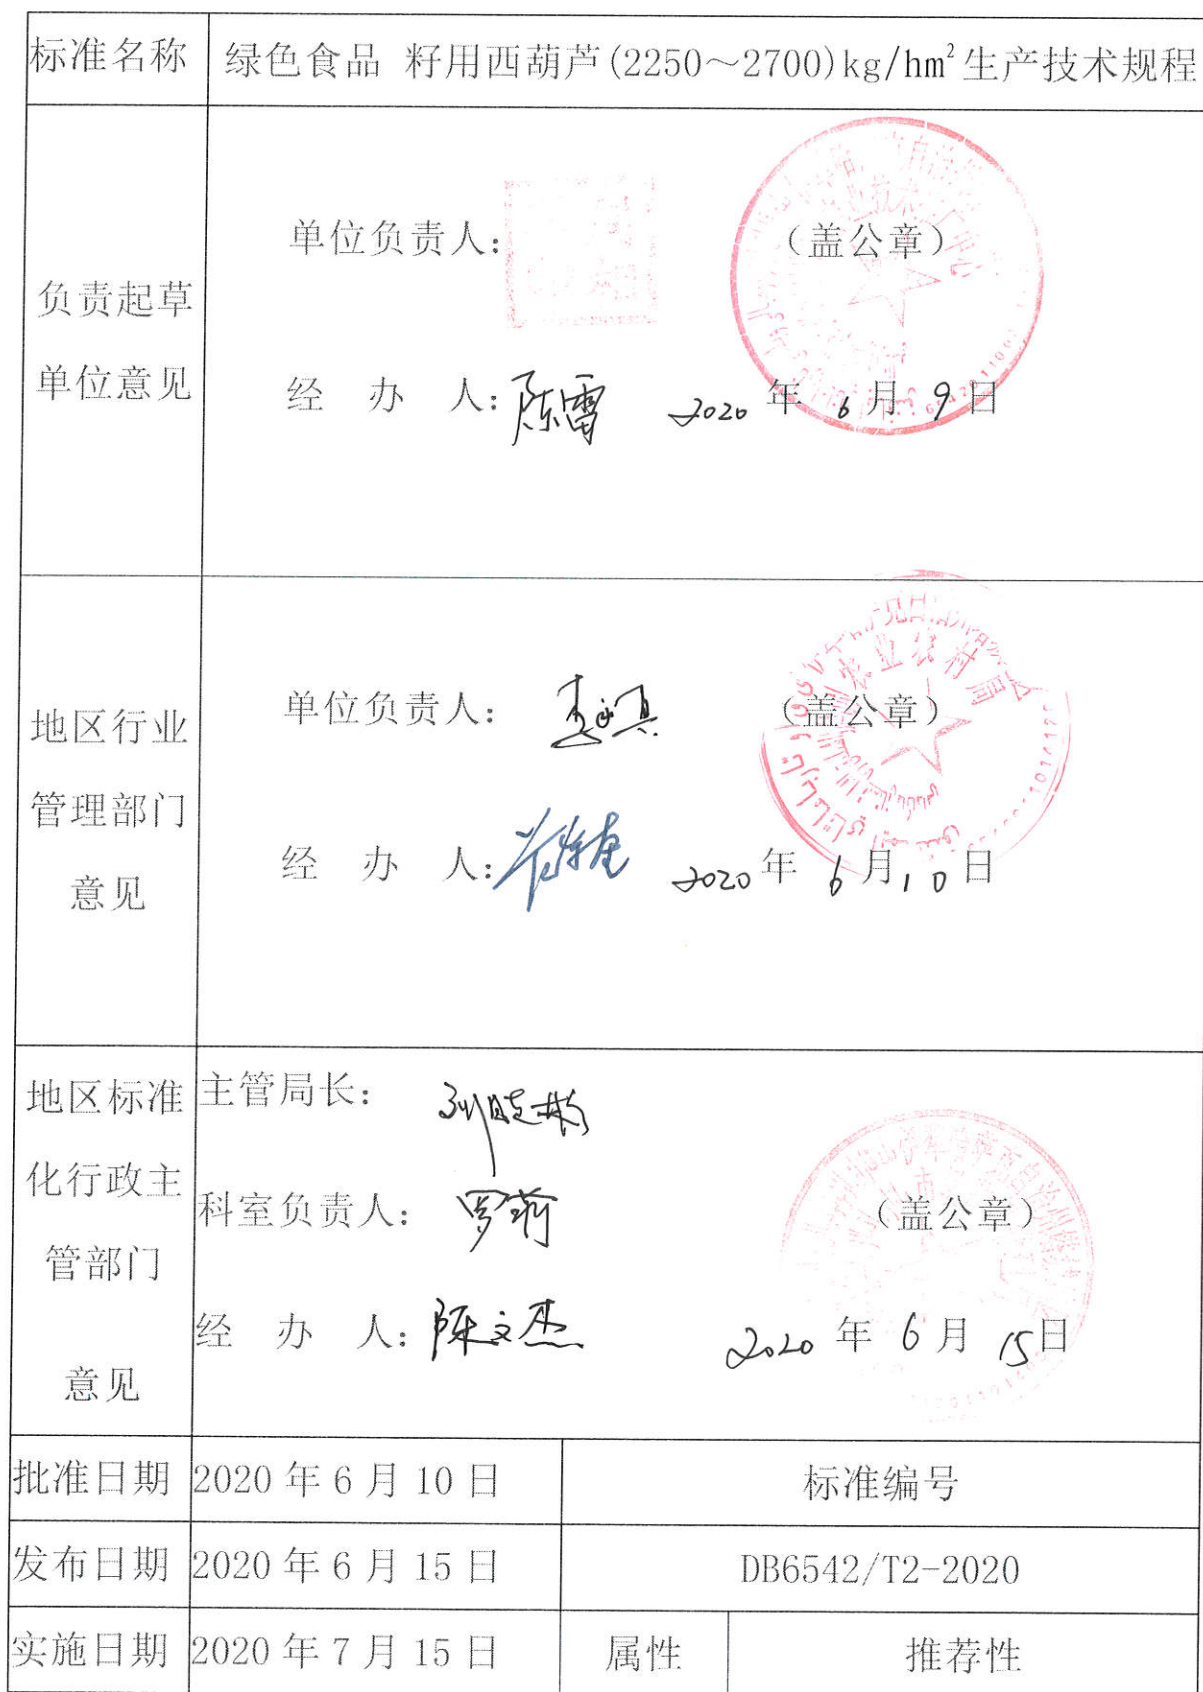 标准名称 绿色食品 籽用西葫芦(2250～2700)kg/hm²生产技术规程
负责起草
单位意见
单位负责人：
（盖公章）
经 办 人：陈雷 2020 年 6 月 9 日
地区行业
管理部门
意见
单位负责人：
（盖公章）
农业农村局
经 办 人： 2020 年 6 月 10 日
地区标准
化行政主
管部门
意见
主管局长：
科室负责人：罗莉
（盖公章）
经 办 人：陈文杰 2020 年 6 月 15 日
批准日期 2020 年 6 月 10 日 标准编号
发布日期 2020 年 6 月 15 日 DB6542/T2-2020
实施日期 2020 年 7 月 15 日 属性 推荐性